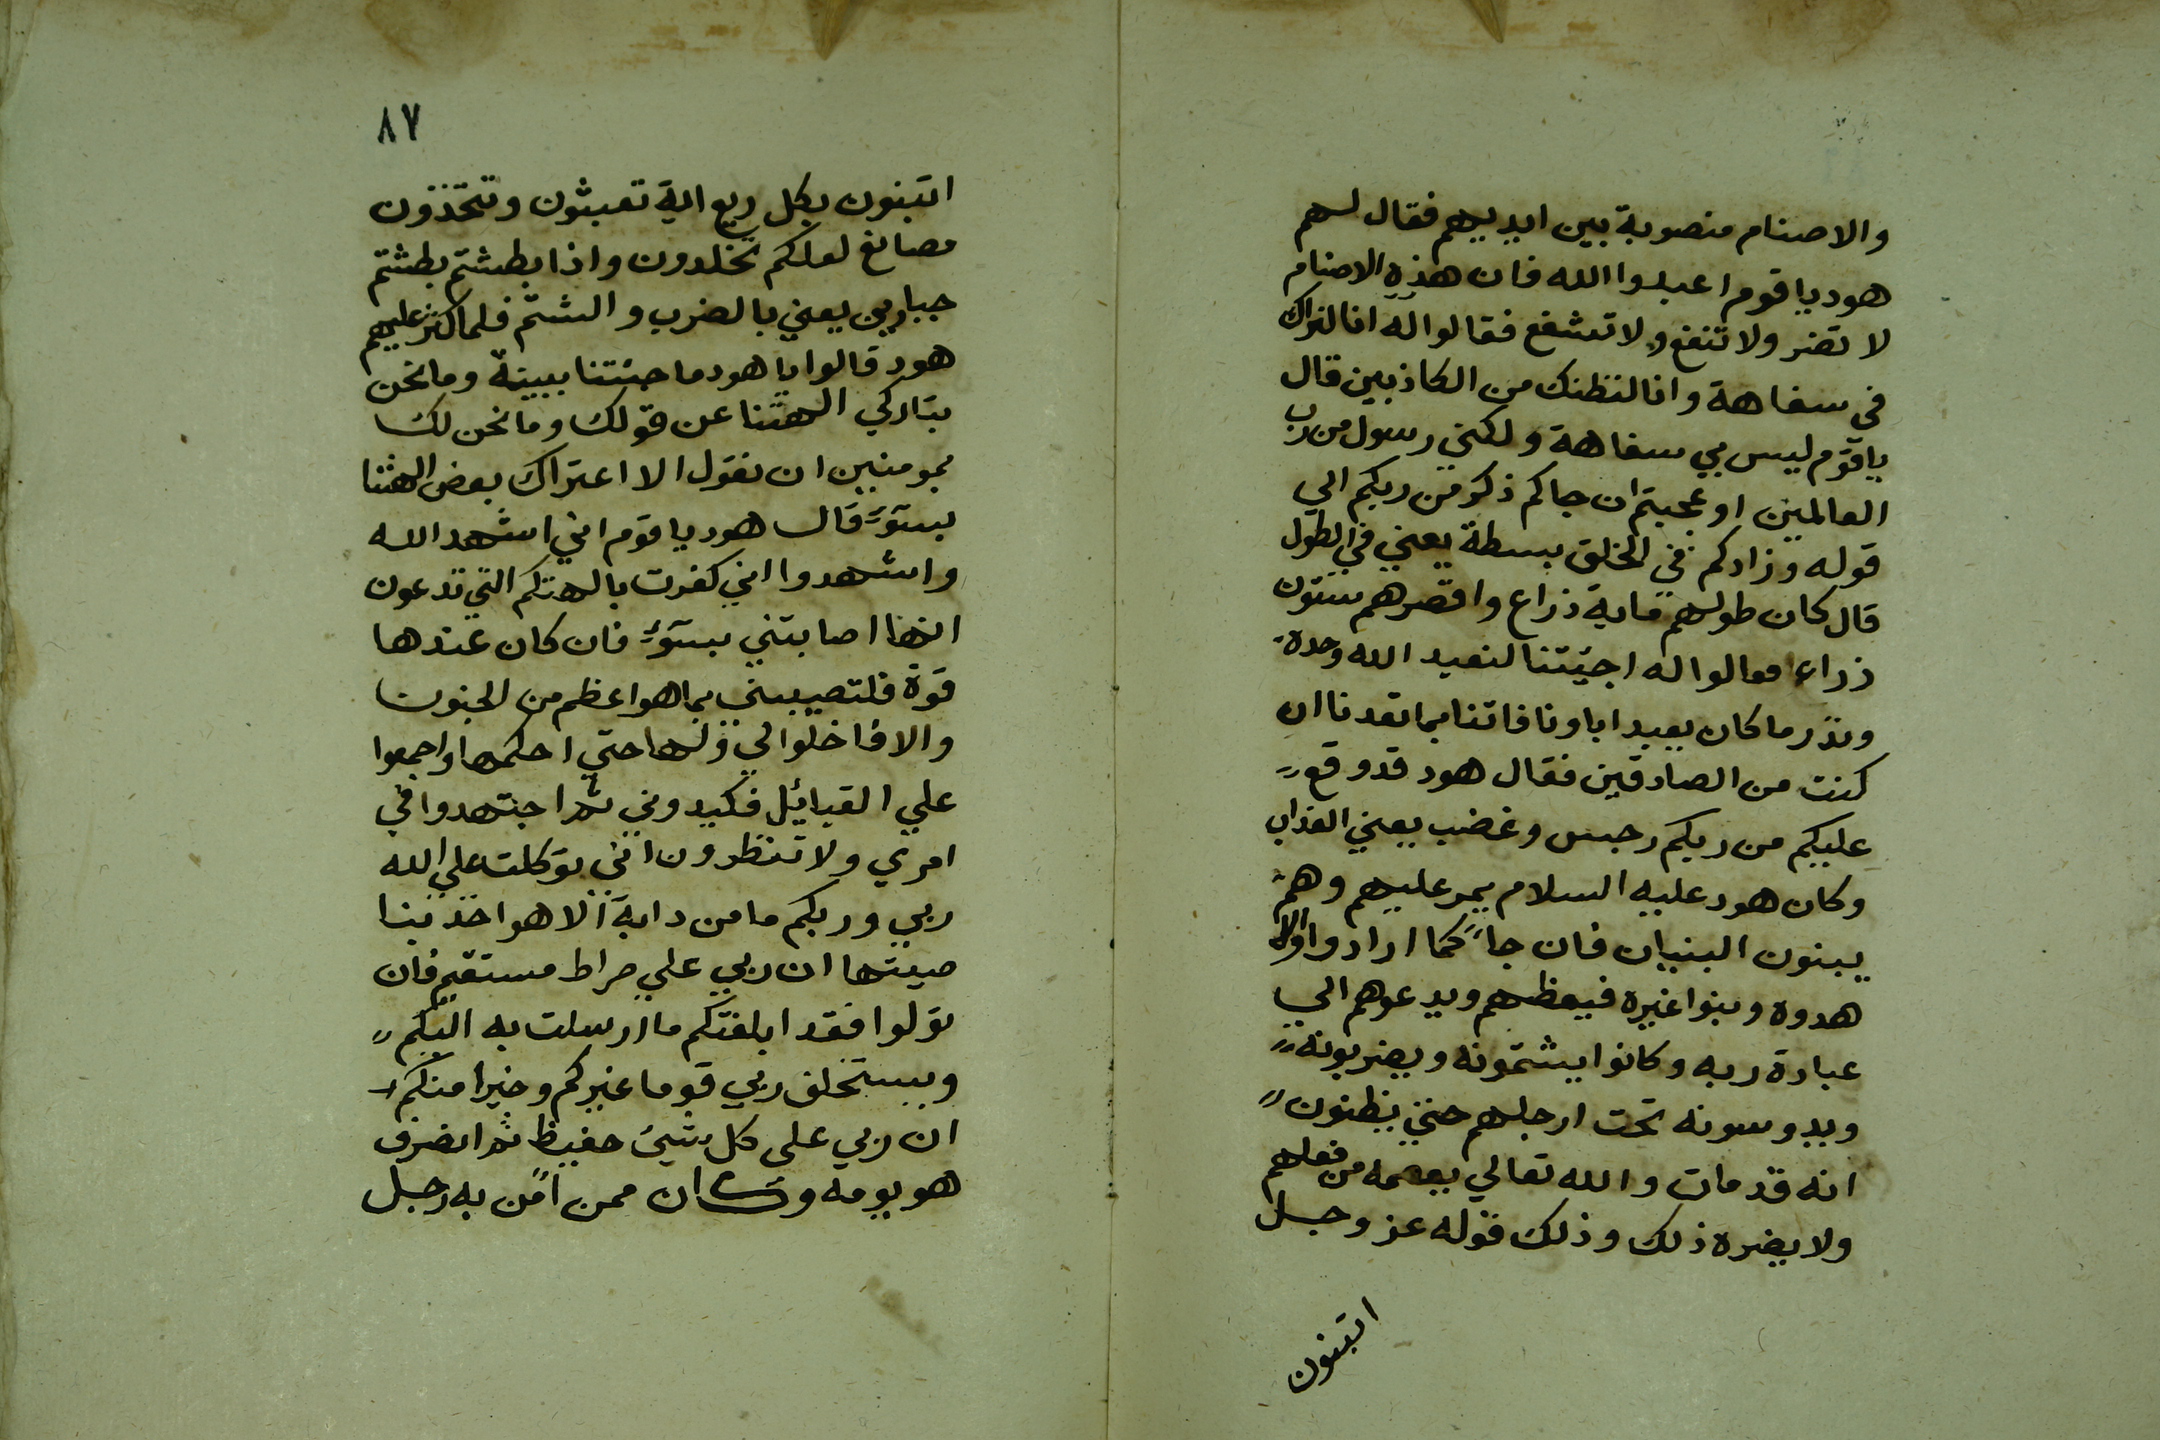 والاصنام منصوبة بين ايديهم فقال لهم
هود يا قوم اعبدوا الله فان هذه الاصنام
لا تضر ولا تنفع ولا تشفع فقالوا له انا لنراك
في سفاهة وانا لنظنك من الكاذبين قال
يا قوم ليس بي سفاهة ولكني رسول من رب
العالمين او عجبتم ان جاكم ذكر من ربكم الي
قوله وزادكم في الخلق بسطة يعني في الطول
قال كان طولهم ماية ذراع واقصرهم ستون
ذراع فقالوا له اجيتنا لنعبد الله وحده
ونذر ما كان يعبد اباونا فاتنا بما تعدنا ان
كنت من الصادقين فقال هود قد وقع
عليكم من ربكم رجس وغضب يعني العذاب
وكان هود عليه السلام يمر عليهم وهم
يبنون البنيان فان جا كما ارادوا والا
هدوه وبنوا غيره فيعظهم ويدعوهم الي
عبادة ربه وكانوا يشتمونه ويضربونه
ويدوسونه تحت ارجلهم حتي يظنون
انه قد مات والله تعالي يعصمه من فعلهم
ولا يضره ذلك وذلك قوله عز وجل
اتبنون
٨٧
اتبنون بكل ريع اية تعبثون وتتخذون
مصانع لعلكم تخلدون واذا بطشتم بطشتم
جبارين يعني بالضرب والشتم فلما اكثر عليهم
هود قالوا يا هود ما جئتنا ببينة وما نحن
بتاركي الهتنا عن قولك وما نحن لك
بمومنين ان نقول الا اعتراك بعض الهتنا
بسوء قال هود يا قوم اني اشهد الله
واشهدوا اني كفرت بالهتكم التي تدعون
انها اصابتني بسوء فان كان عندها
قوة فلتصيبني بما هو اعظم من الجنون
والا فاخلوا لي ولها حتي احكمها واجمعوا
علي القبائيل فكيدوني ثم اجتهدوا في
امري ولا تنظرون اني توكلت علي الله
ربي وربكم ما من دابة الا هو اخذ بنا
صيتها ان ربي علي صراط مستقيم فان
تولوا فقد ابلغتكم ما ارسلت به اليكم
ويستخلف ربي قوما غيركم وخيرا منكم
ان ربي على كل شيئ حفيظ ثم انصرف
هو يومه وكان ممن امن به رجل